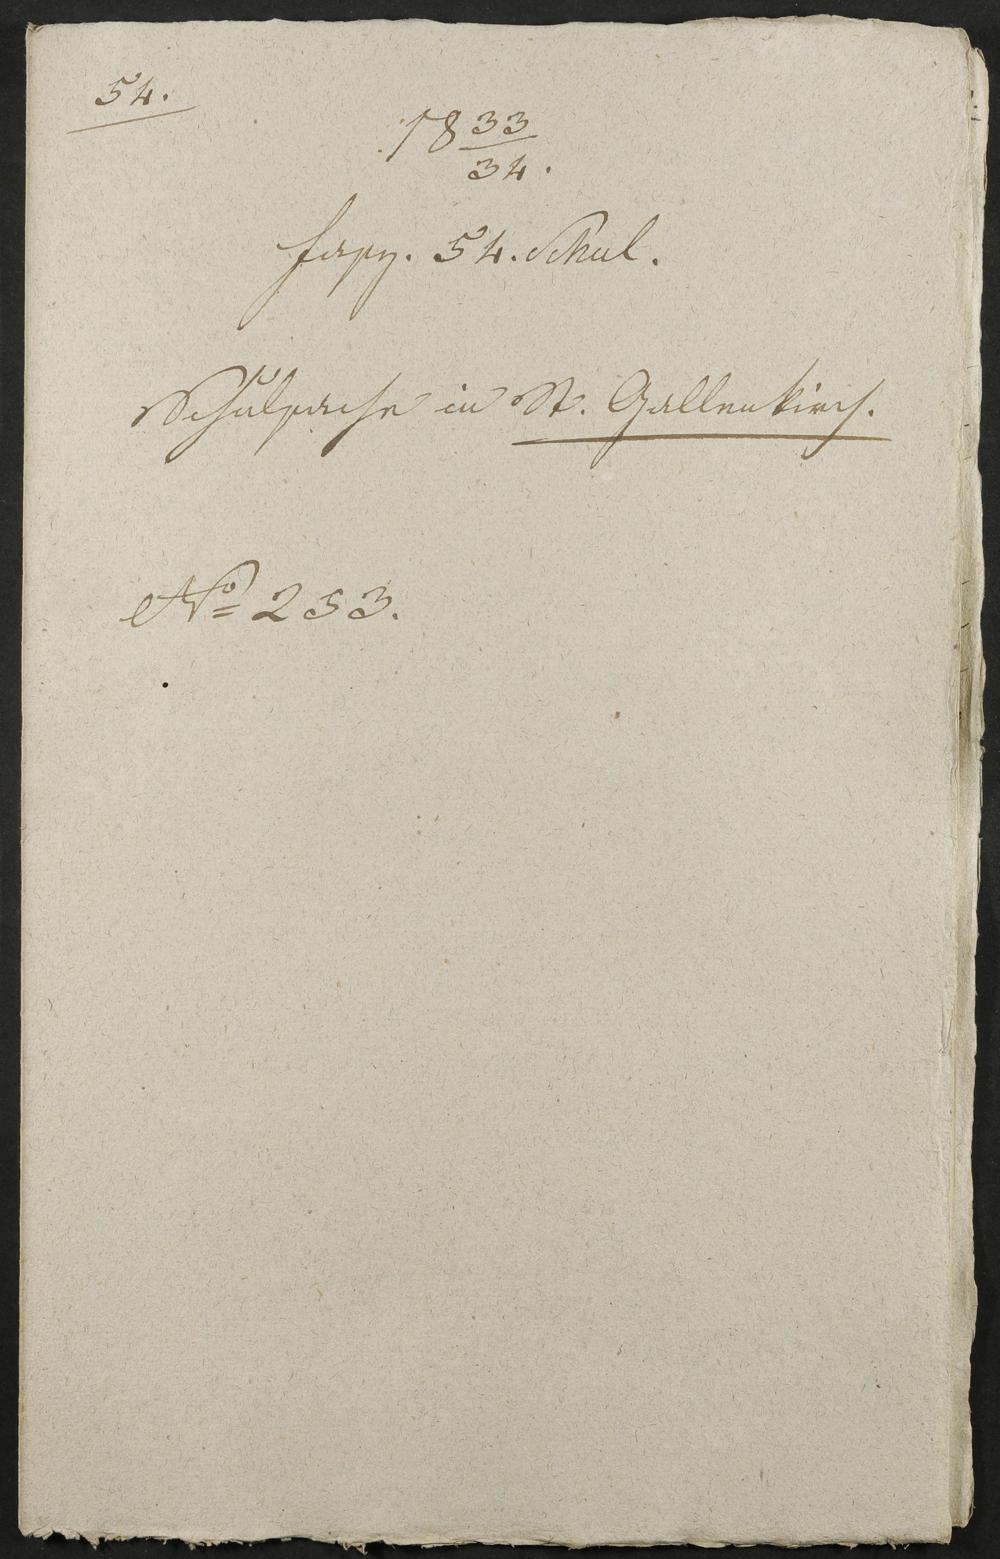 54.
18 33/34.
Fasz. 54. Schul.
Schulsache in St. Gallenkirch.
No 253.